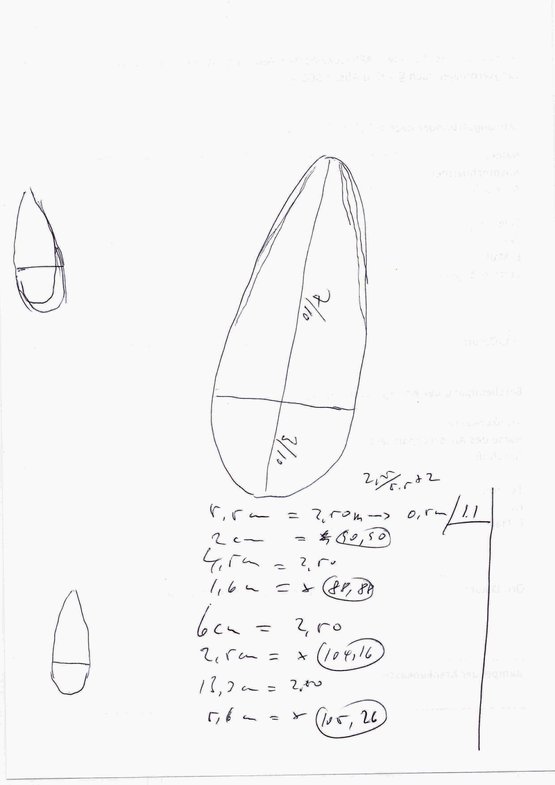 7/10
3/10
2,5/5.5*2
5,5 cm = 2,50 m → 0,5 cm / 1.1
2 cm = x 90,90
4,5 cm = 2,50
1,6 cm = x 88,88
6 cm = 2,50
2,5 cm = x 104,16
13,3 cm = 2,50
5,6 cm = x 105,26